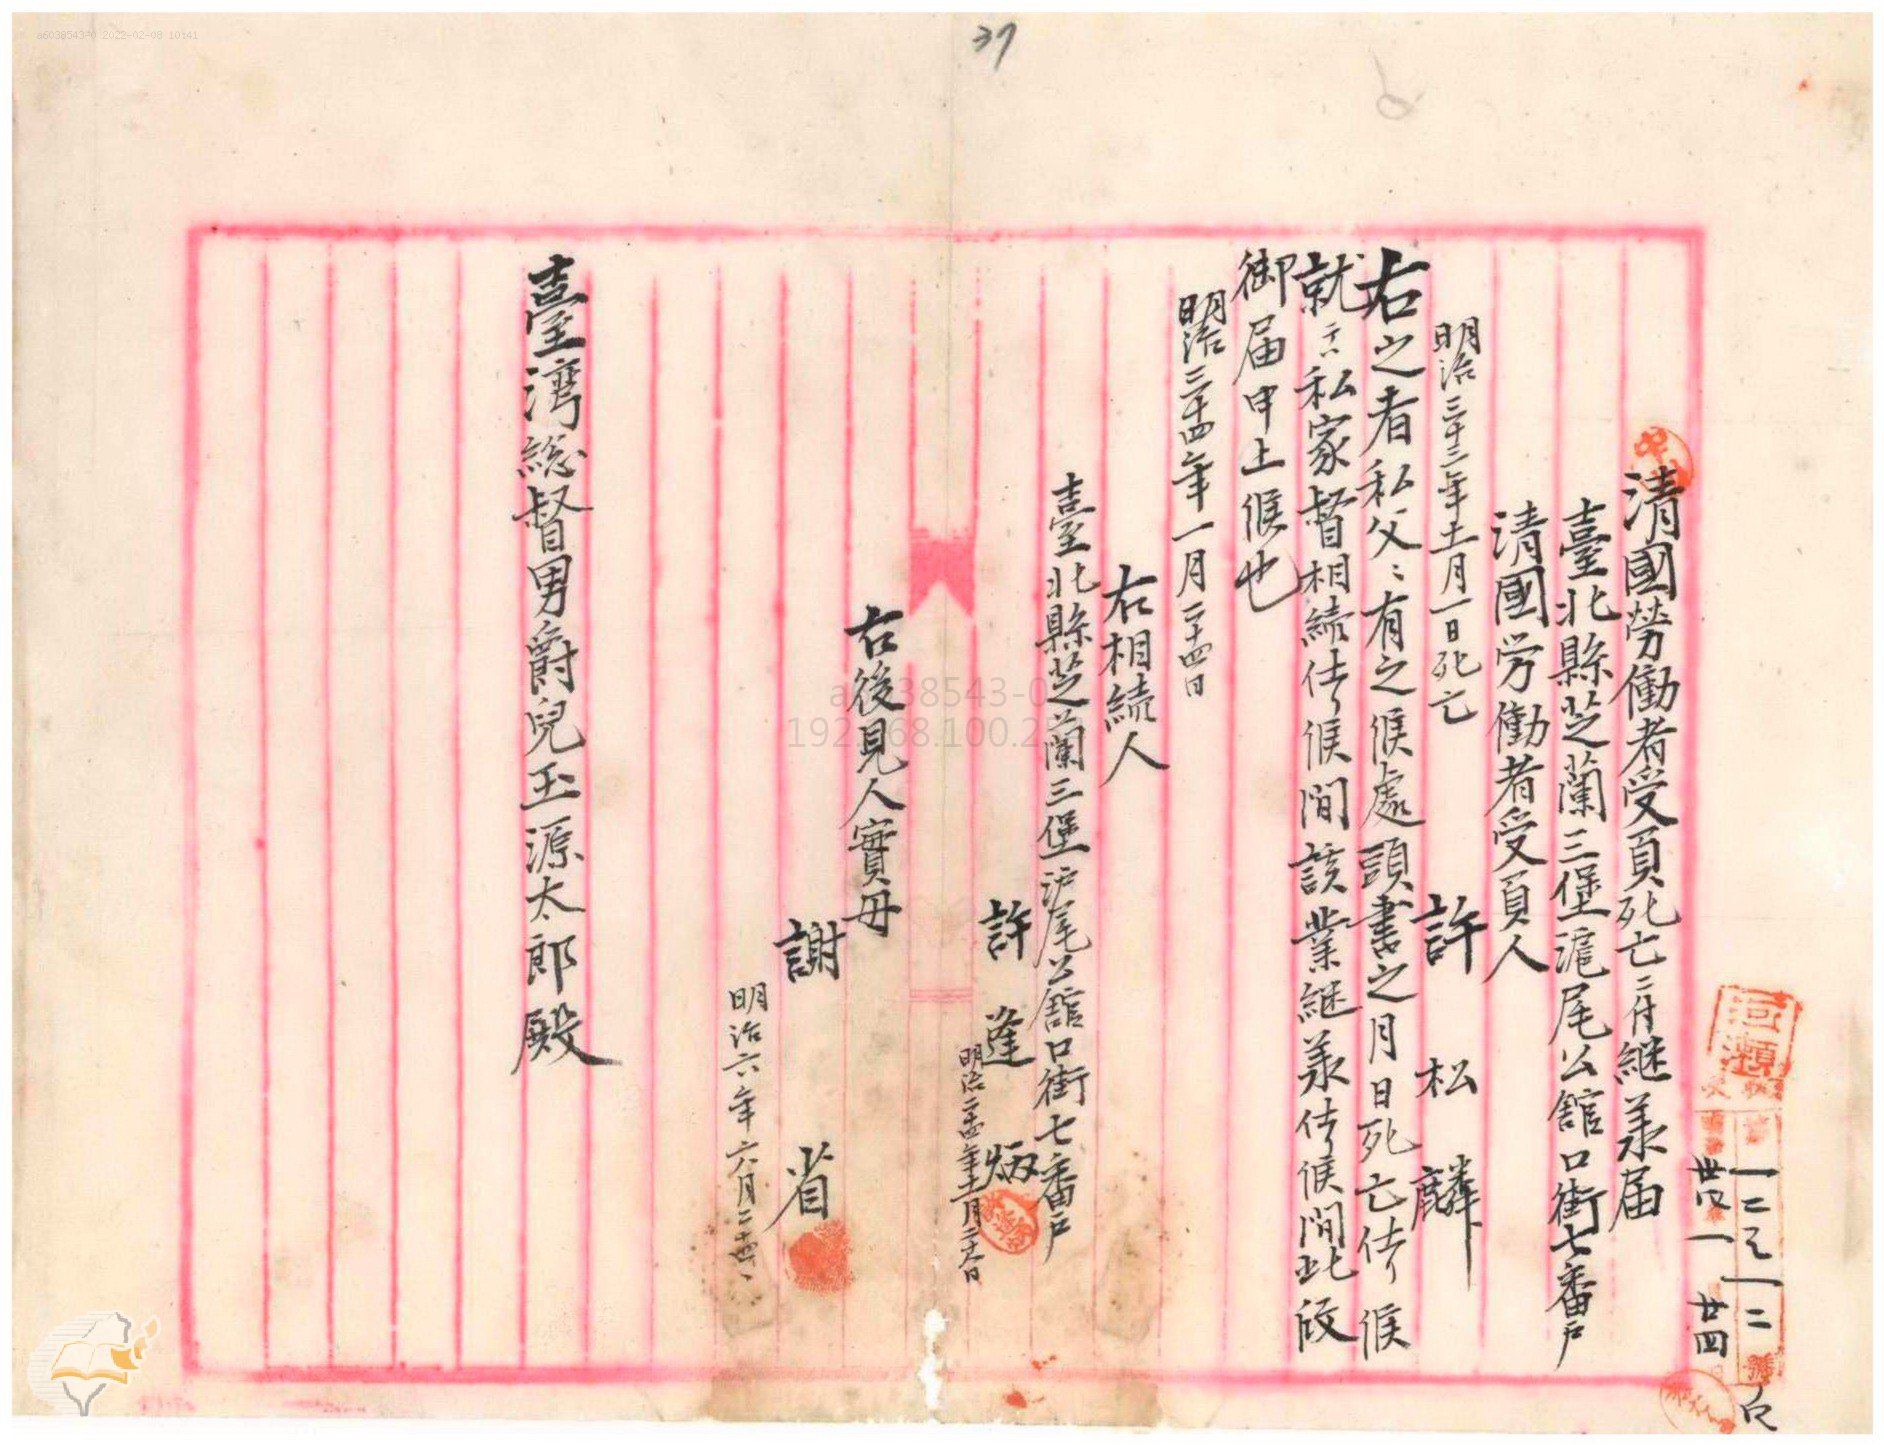 a6038543-0 2022-02-08 10:41
37
清國勞働者受負死亡ニ付継承届
臺北縣芝蘭三堡滬尾公館口街七番戶
清國労働者受負人
許松麟
明治三十三年十二月一日死亡
右之者私父ニ有之候處頭書之月日死亡仕候
就テハ私家督相続仕候間該業継承仕候間此段
御届申上候也
明治三十四年一月二十四日
右相続人
臺北縣芝蘭三堡沪尾公館口街七番戶
許逢炳
明治二十四年十二月二十六日
右後見人實母
謝省
明治六年六月二十四
臺灣総督男爵兒玉源太郎殿
河瀬
卅四 一 廿四